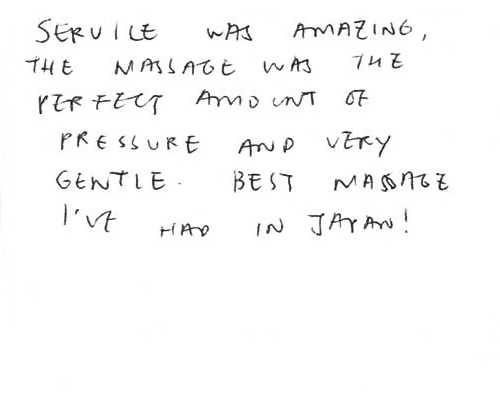 SERVICE WAS AMAZING,
THE MASSAGE WAS THE
PERFECT AMOUNT OF
PRESSURE AND VERY
GENTLE. BEST MASSAGE
I'VE HAD IN JAPAN!